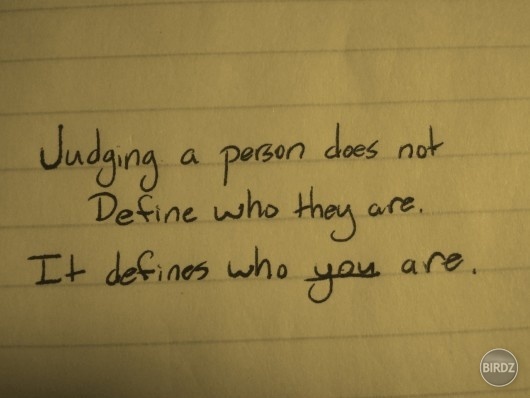 Judging a person does not
Define who they are.
It defines who you are.
BIRDZ